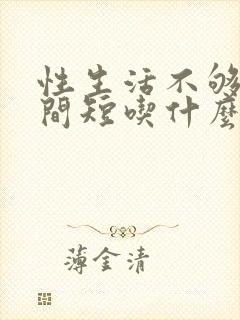 性生活不够
間短喫什麼
薄金清